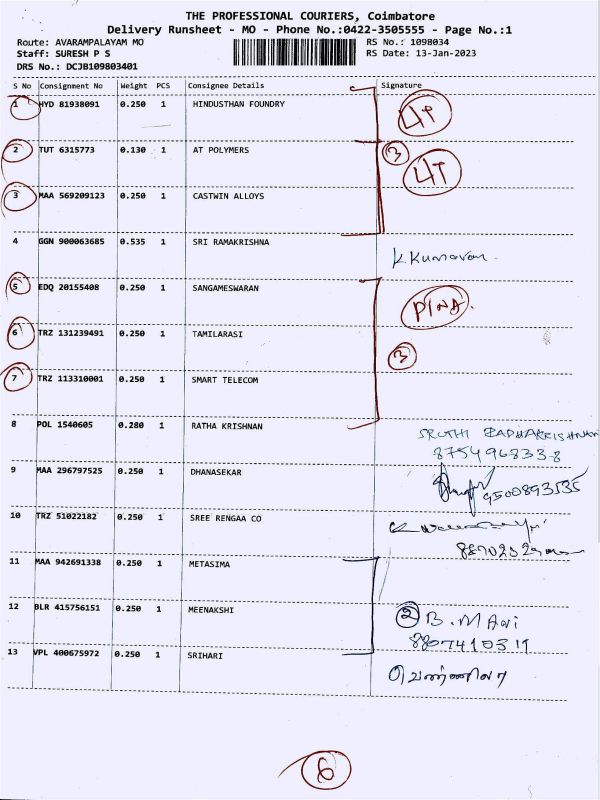 THE PROFESSIONAL COURIERS, Coimbatore
Delivery Runsheet - MO - Phone No.:0422-3505555 - Page No.:1
Route: AVARAMPALAYAM MO RS No.: 1098034
Staff: SURESH P S RS Date: 13-Jan-2023
DRS No.: DCJB109803401
S No Consignment No Weight PCS Consignee Details Signature
1 HYD 81938091 0.250 1 HINDUSTHAN FOUNDRY
2 TUT 6315773 0.130 1 AT POLYMERS 3
3 MAA 569209123 0.250 1 CASTWIN ALLOYS
4 GGN 900063685 0.535 1 SRI RAMAKRISHNA
K Kumaran
5 EDQ 20155408 0.250 1 SANGAMESWARAN
6 TRZ 131239491 0.250 1 TAMILARASI
3
7 TRZ 113310001 0.250 1 SMART TELECOM
8 POL 1540605 0.280 1 RATHA KRISHNAN SRUTHI RADHAKRISHNAN
8754968338
9 MAA 296797525 0.250 1 DHANASEKAR
9500893535
10 TRZ 51022182 0.250 1 SREE RENGAA CO
11 MAA 942691338 0.250 1 METASIMA
12 BLR 415756151 0.250 1 MEENAKSHI 2 B. Mani
8807410311
13 VPL 400675972 0.250 1 SRIHARI
வெண்ணிலா
6